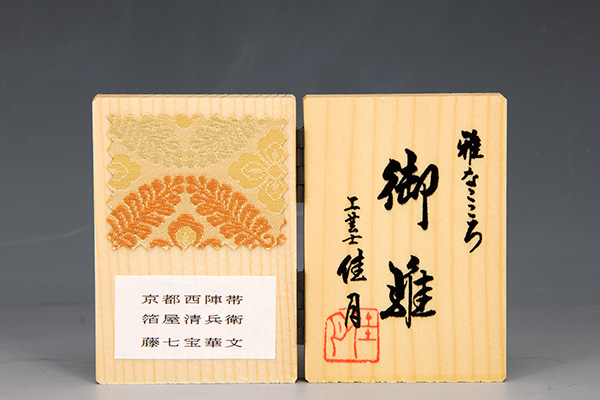 雅なこころ
御雛
工芸士 佳月
京都西陣帯
箔屋清兵衛
藤七宝華文